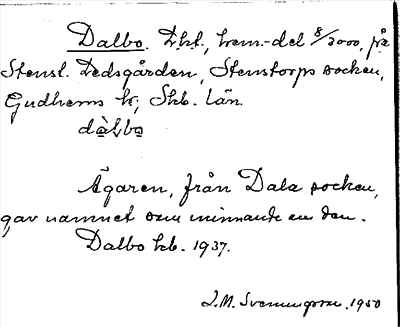 Dalbo. Lht., hem.-del 8/3000, på
Stensl. Dedsgården, Stenstorps socken,
Gudhems hd; Skb. län.
dàlbo
Ägaren, från Dala socken,
gav namnet som minne av den.
Dalbo hb. 1937.
J.M. Svenningsson. 1950